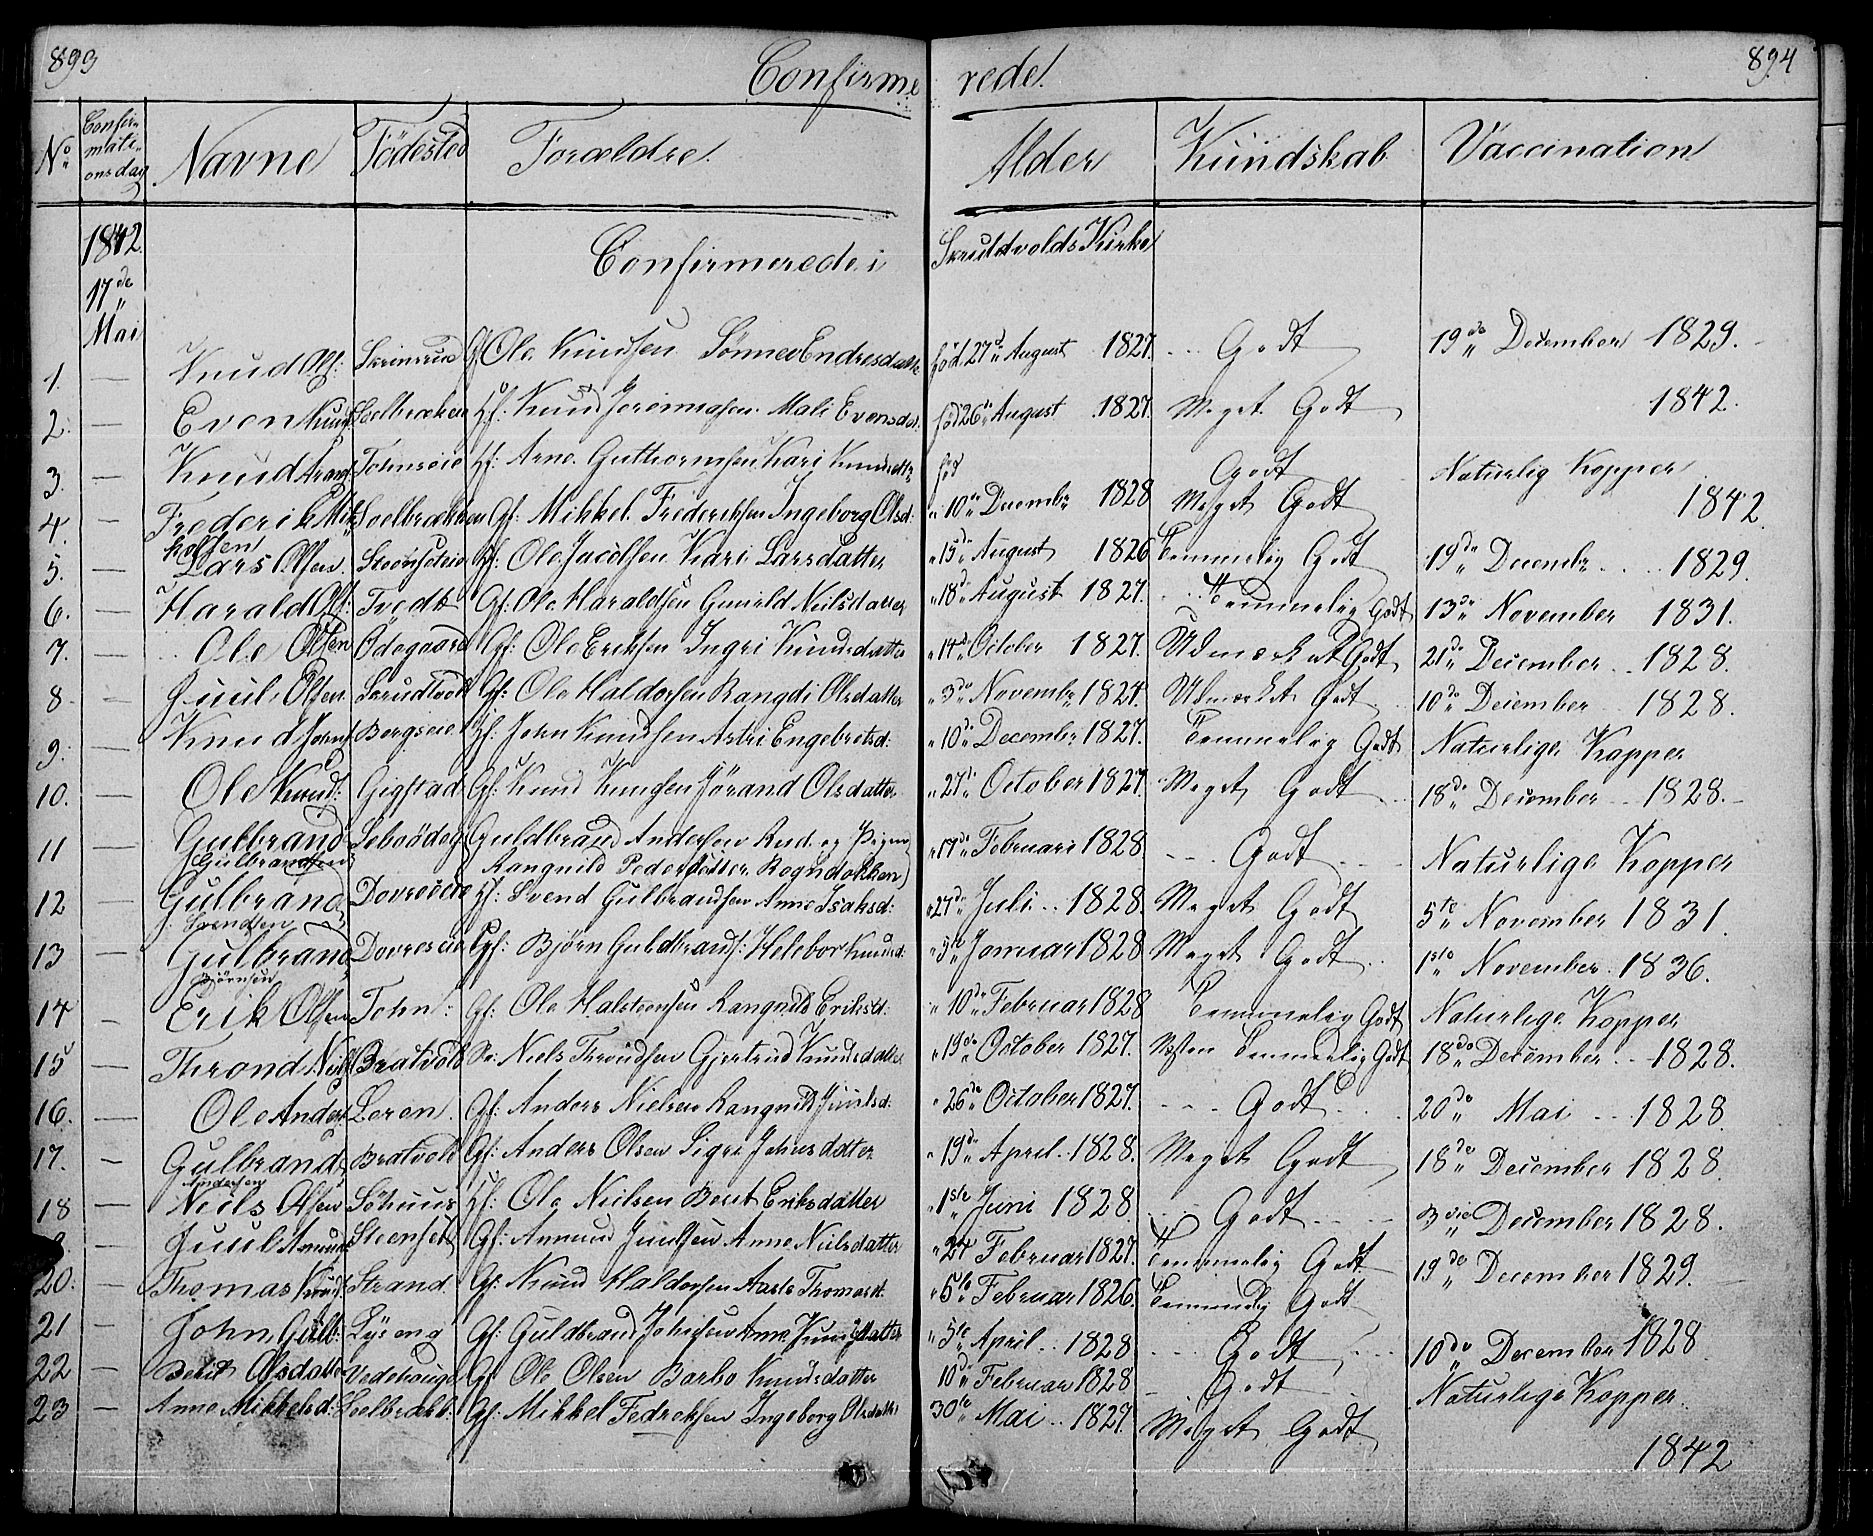 893 Confirme rede. 894
No. Confirmationsdag Navne Födested Forældre. Alder Kundskab Vaccination
1842. Confirmerede i Skrutvolds Kirke
17de
Mai
1. — Knud Ols: Skrinsrud Gf Ole Knudsen Sönnev Endresdatter föd 27de August 1827. Godt 19de December 1829.
2. — Even Knuds: Soelbrækken Hf: Knud Meget Godt 1842.
Mali Evensdat: föd 26de August 1827.
3. — Knud Arnes: Tohnseie Hf: Arne Guttormsen Kari Knudsdatter föd Godt Naturlig Kopper
4. — Frederik Mikkelsen Soelbrækken Gf: Mikkel Frederiksen Ingeborg Olsd: 10de Decembr 1828 Meget Godt 1842.
5. — Lars Olsen Hf: Ole Jacobsen Kari Larsdatter 15de August 1826 Temmelig Godt 19de Decembr 1829.
6. — Harald Ols: Tvedt Gf: Ole Haraldsen Gunild Neilsdatter 18de August 1827. Temmelig Godt 13de November 1831.
7. — Ole Olsen Ödegaard Gf: Ole Eriksen Ingri Knudsdatter 14de October 1827. Udmærket Godt 21de December 1828.
8. — Juul Olsen Skrudtvold Gf: Ole Haldorsen Rangdi Olsdatter 3de Novembr 1827. Udmærket Godt 10de December 1828.
9. — Knud Johns: Bergseie Hf: John Knudsen Astri Engebretsd: 10de Decembr 1827. Temmelig Godt Naturlige Kopper
10. — Ole Knud: Gigstad Gf: Knud Knudsen Jörand Olsdatter 27de October 1827. Meget Godt 18de December 1828.
11 — Gulbrand Gulbrandsen Guldbrand Andersen Rud og Pigen 17de Februari 1828 Godt Naturlige Kopper
Rangnild Pedersdatter Rogndokken
12 — Gulbrand Svendsen Dovreeie Hf: Svend Gulbrandsen Anne Isaksd: 27de Juli 1828. Meget Godt 5te November 1831.
13 — Gulbrand Björnsen Dovreseie Gf: Björn Guldbrands: Helebor Knudsd: 5te Januar 1828 Meget Godt 1ste November 1836.
14 — Erik Olsen Tohn: Gf: Ole Halsteensen Rangnild Eriksd: 10de Februar 1828 Temmelig Godt Naturlige Kopper
15 — Thrond Niels Bratvold Niels Throndsen Gjertrud Knudsdatter 19de October 1827. Næsten Temmelig Godt 18de December 1828.
16. — Ole Anders Loren Gf: Anders Nielsen Rangnild Juulsd: 26de October 1827. Godt 20de Mai 1828
17. — Gulbrand Andersen Bratvold Gf: Anders Olsen Sigri Johnsdatter 19de April 1828. Meget Godt 18de December 1828.
18 — Neils Olsen Söhuus Hf: Ole Neilsen Beret Eriksdatter 1ste Juni 1828 Godt 3die December 1828.
— Juul Amunds Steenset Gf: Amund Juulsen Anne Nielsdatter 24 Februar 1827. Temmelig Godt 19de December 1829.
20. — Thomas Knuds Strand Gf: Knud Haldorsen Aaste Thomasd. 5te Februar 1826. Temmelig Godt
21 — John Gulb: Lyseng Gf: Guldbrand Johnsen Anne Knudsdatter 5te April 1828 Godt 10de December 1828
22 — Berit Olsdatter Vedehougen Gf Ole Olsen Barbo Knudsdatter 10de Februar 1828 Godt Naturlige Kopper
23 — Anne Mikkelsd: Soelbrækk: Gf: Mikkel Fedreksen Ingeborg Olsdatter 30te Mai 1827. Meget Godt 1842